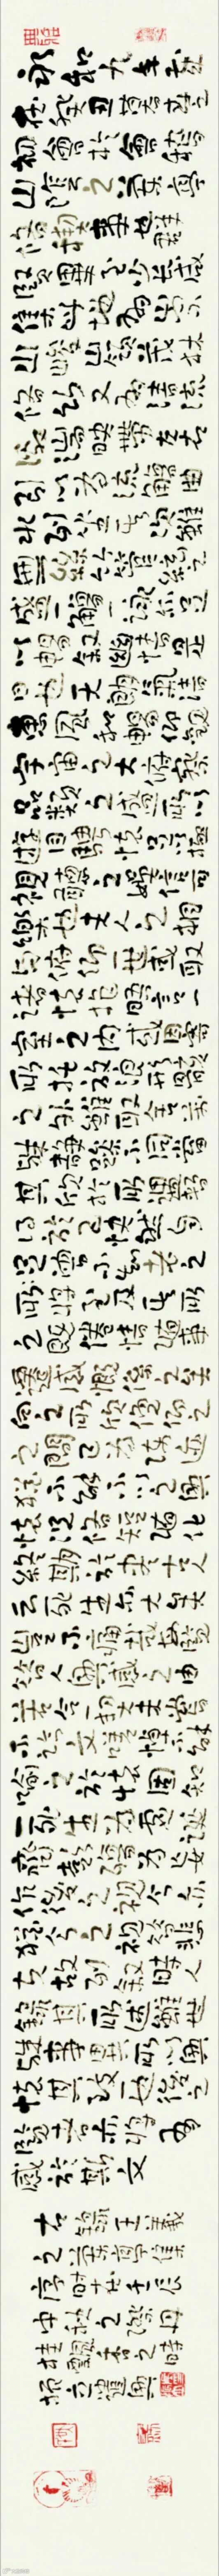 永和九年歲
在癸丑暮春之
初會於會稽
山陰之蘭亭
修禊事也群賢
畢至少長咸
集此地有崇
山峻嶺茂林
修竹又有清流
激湍映帶左右
引以為流觴曲
水列坐其次雖
無絲竹管絃之
盛一觴一詠亦足
以暢敘幽情是
日也天朗氣清
惠風和暢仰觀
宇宙之大俯察
品類之盛所以
遊目騁懷足以極
視聽之娛信可
樂也夫人之相
與俯仰一世或取
諸懷抱晤言一
室之內或因寄
所託放浪形骸
之外雖取舍萬
殊靜躁不同當
其欣於所遇暫
得於己快然自
足曾不知老之
將至及其所
之既倦情隨事
遷感慨係之矣
向之所欣俛仰之
間已為陳迹
猶不能不以之興
懷況修短隨化
終期於盡古人
云死生亦大矣
豈不痛哉每覽
昔人興感之由
若合一契未嘗
不臨文嗟悼不能
喻之於懷固知
一死生為虛誕
齊彭殤為妄
作後之視今亦
猶今之視昔悲
夫故列敘時人
錄其所述雖世
殊事異所以興
懷其致一也後之
覽者亦將有
感於斯文
右錄王羲
之蘭亭集
序時在壬辰